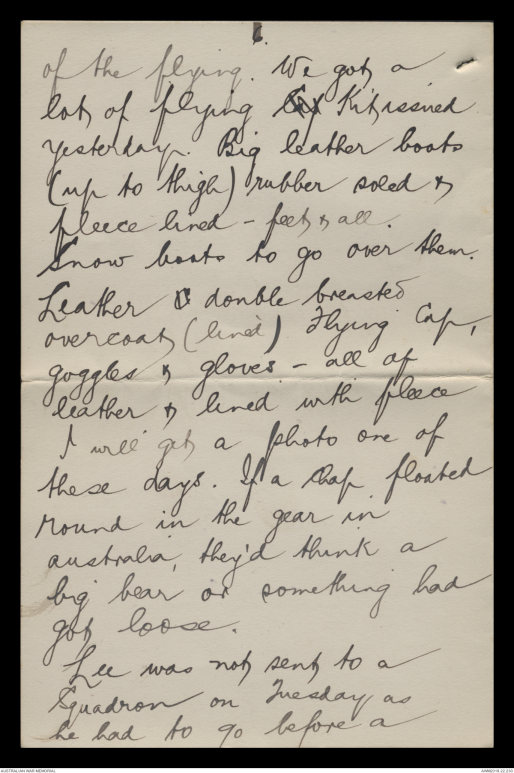 of the flying. We got a
lot of flying Kit issued
yesterday. Big leather boots
(up to thigh) rubber soled &
fleece lined - feet & all.
Snow boots to go over them.
Leather double breasted
overcoat (lined) Flying Cap,
goggles & gloves - all of
leather & lined with fleece
I will get a photo one of
these days. If a chap floated
round in the gear in
australia, they'd think a
big bear or something had
got loose.
Lee was not sent to a
Squadron on Tuesday as
he had to go before a
AUSTRALIAN WAR MEMORIAL